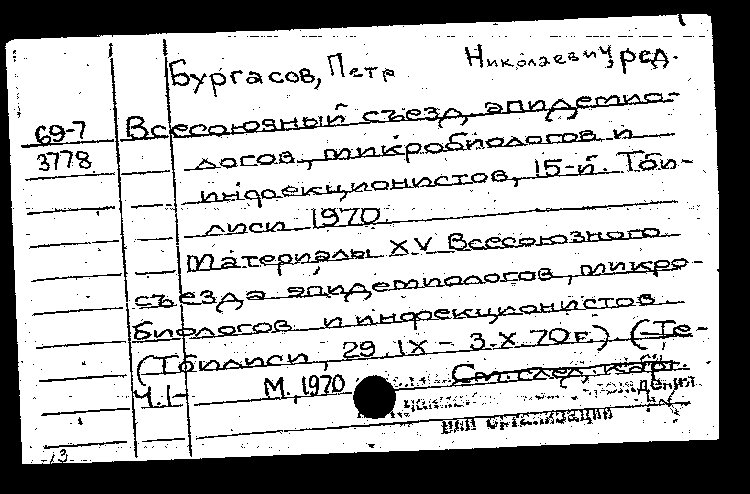 Бургасов, Петр Николаевич, ред.
69-7 Всесоюзный съезд эпидемио-
3778 логов, микробиологов и
инфекционистов, 15-й. Тби-
лиси 1970.
Материалы XV Всесоюзного
съезда эпидемиологов, микро-
биологов и инфекционистов.
(Тбилиси, 29.IX - 3.X.70г.) (Те-
См. след. карт.
Ч.1- М., 1970
или организации
13